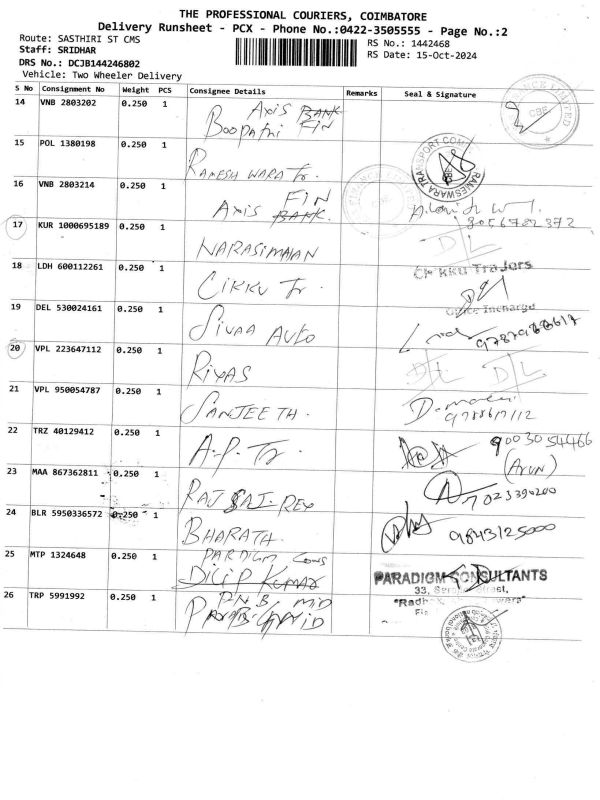 THE PROFESSIONAL COURIERS, COIMBATORE
Delivery Runsheet - PCX - Phone No.:0422-3505555 - Page No.:2
Route: SASTHIRI ST CMS
Staff: SRIDHAR
DRS No.: DCJB144246802
Vehicle: Two Wheeler Delivery
RS No.: 1442468
RS Date: 15-Oct-2024
S No Consignment No Weight PCS Consignee Details Remarks Seal & Signature
14 VNB 2803202 0.250 1 Axis BANK FIN
Boopathi
15 POL 1380198 0.250 1 RAMESHWARA Tr.
RAMESWARA TRANSPORT COM
16 VNB 2803214 0.250 1 Axis BANK. FIN
8056782372
17 KUR 1000695189 0.250 1 NARASIMMAN D/L
18 LDH 600112261 0.250 1 CIKKU Tr.
CHIKKU Traders
Office Incharge
19 DEL 530024161 0.250 1 SIVAA AUTO
20 VPL 223647112 0.250 1 RIYAS D/L D/L
21 VPL 950054787 0.250 1 SANJEETH.
22 TRZ 40129412 0.250 1 A.P. Tr.
9003054466
(Arun)
23 MAA 867362811 0.250 1 RAJ SAI REX
7023390200
24 BLR 5950336572 0.250 1 BHARATH.
9843125000
25 MTP 1324648 0.250 1 PARDIGM CONS
DILIP KUMAR
PARADIGM CONSULTANTS
26 TRP 5991992 0.250 1 P.N.B, MID